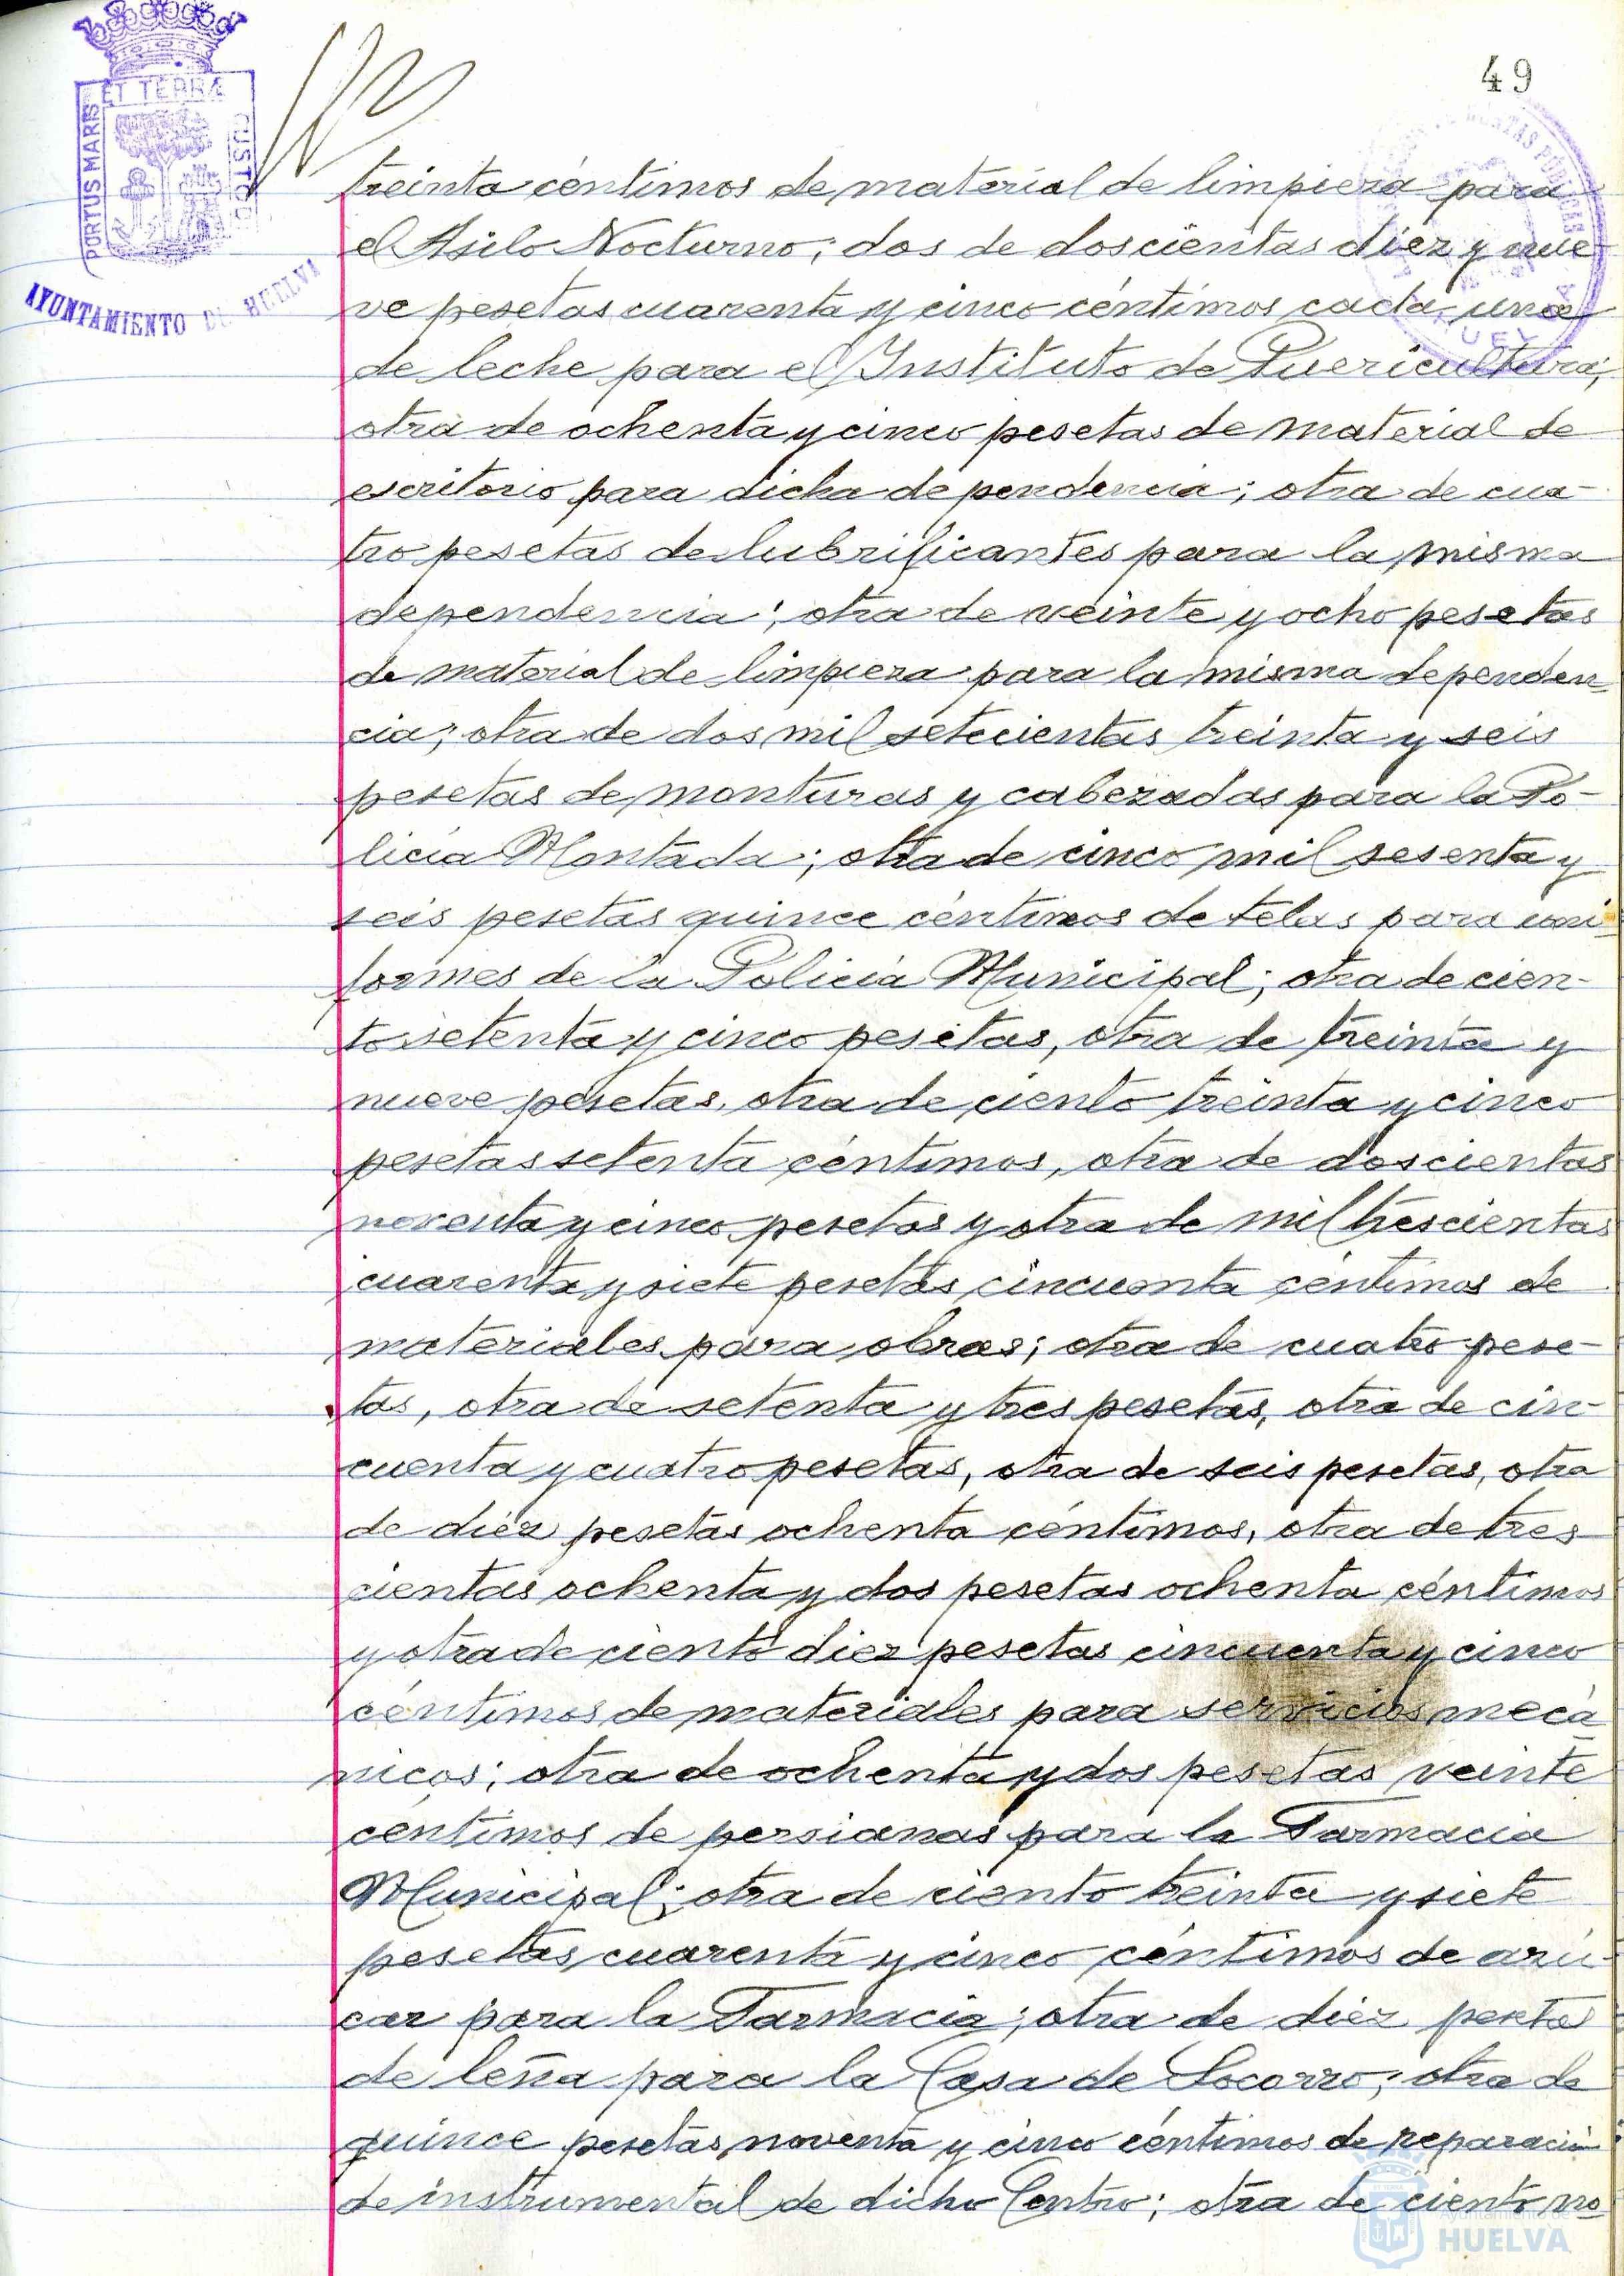 49
PORTUS MARIS
ET TERRÆ
CUSTODI
AYUNTAMIENTO DE HUELVA
treinta céntimos de material de limpieza para
el Asilo Nocturno; dos de doscientas diez y nue-
ve pesetas cuarenta y cinco céntimos cada una
de leche para el Instituto de Puericultura;
otra de ochenta y cinco pesetas de material de
escritorio para dicha dependencia; otra de cua-
tro pesetas de lubrificantes para la misma
dependencia; otra de veinte y ocho pesetas
de material de limpieza para la misma dependen-
cia; otra de dos mil setecientas treinta y seis
pesetas de monturas y cabezadas para la Po-
licía Montada; otra de cinco mil sesenta y
seis pesetas quince céntimos de telas para uni-
formes de la Policía Municipal; otra de cien-
to setenta y cinco pesetas, otra de treinta y
nueve pesetas, otra de ciento treinta y cinco
pesetas setenta céntimos, otra de doscientas
noventa y cinco pesetas y otra de mil trescientas
cuarenta y siete pesetas cincuenta céntimos de
materiales para obras; otra de cuatro pese-
tas, otra de setenta y tres pesetas, otra de cin-
cuenta y cuatro pesetas, otra de seis pesetas, otra
de diez pesetas ochenta céntimos, otra de tres
cientas ochenta y dos pesetas ochenta céntimos
y otra de ciento diez pesetas cincuenta y cinco
céntimos de materiales para servicios mecá
nicos; otra de ochenta y dos pesetas veinte
céntimos de persianas para la Farmacia
Municipal; otra de ciento treinta y siete
pesetas cuarenta y cinco céntimos de azú-
car para la Farmacia; otra de diez pesetas
de leña para la Casa de Socorro; otra de
quince pesetas noventa y cinco céntimos de reparación
de instrumental de dicho Centro; otra de ciento no
Ayuntamiento de
HUELVA